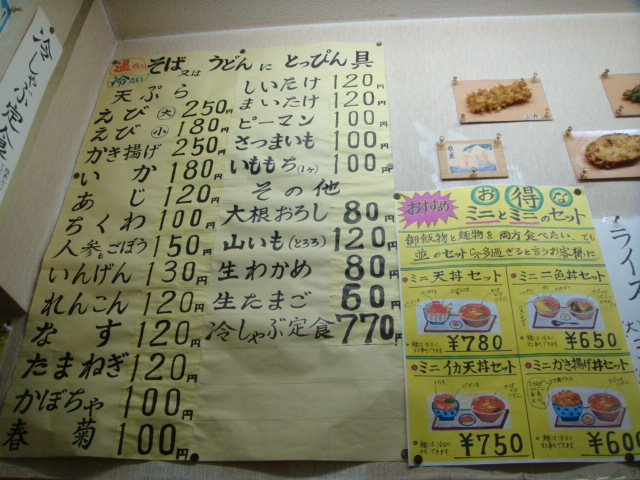 冷しゃぶ定食
温 冷たい そば 又は うどんに とっぴん具
天ぷら
えび 大 250円
えび 小 180円
かき揚げ 250円
いか 180円
あじ 120円
ちくわ 100円
人参とごぼう 150円
いんげん 130円
れんこん 120円
なす 120円
たまねぎ 120円
かぼちゃ 100円
春菊 100円
しいたけ 120円
まいたけ 120円
ピーマン 100円
さつまいも 100円
いももち(1ヶ) 100円
その他
大根おろし 80円
山いも(とろろ) 120円
生わかめ 80円
生たまご 60円
冷しゃぶ定食 770円
おすすめ お得な
ミニとミニのセット
御飯物と麺物を両方食べたい でも
並のセットじゃ多過ぎると言うお客様に
ミニ天丼セット
¥780
ミニ二色丼セット
¥650
ミニイカ天丼セット
¥750
ミニかき揚げ丼セット
¥600
ライス